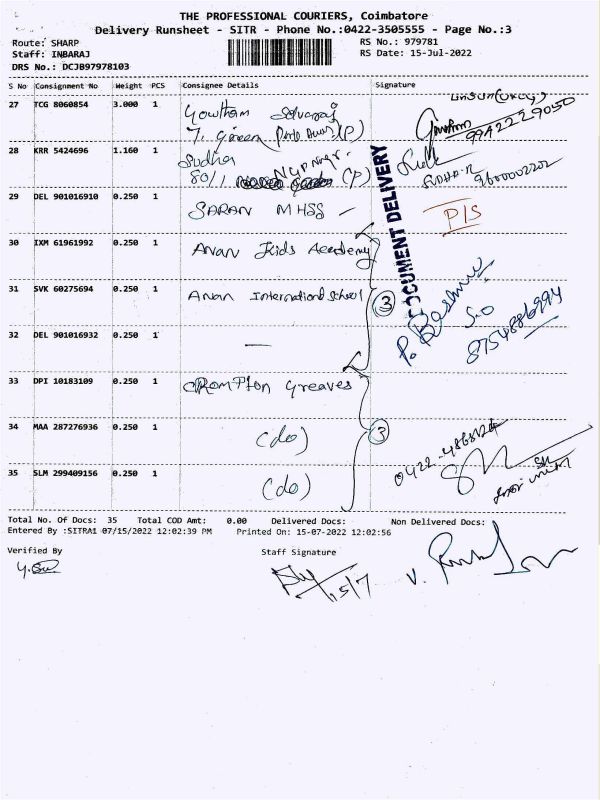 THE PROFESSIONAL COURIERS, Coimbatore
Delivery Runsheet - SITR - Phone No.:0422-3505555 - Page No.:3
Route: SHARP
RS No.: 979781
Staff: INBARAJ
RS Date: 15-Jul-2022
DRS No.: DCJ097978103
S No Consignment No Weight PCS Consignee Details Signature
27 TCG 8060854 3.000 1 Gowtham Selvaraj
7, Green (P)
Gowtham 9942229050
28 KRR 5424696 1.160 1 Sudha
80/1 (P)
SUDHA.R 9600002202
DOCUMENT DELIVERY
29 DEL 901016910 0.250 1 SARAN MHSS -
P/S
30 IXM 61961992 0.250 1 Anan Kids Academy
31 SVK 60275694 0.250 1 Anan International School
3
P.
S.O
8754886994
32 DEL 901016932 0.250 1 —
33 DPI 10183109 0.250 1 CROMPTON Greaves
34 MAA 287276936 0.250 1 (do)
3
35 SLM 299409156 0.250 1 (do)
Total No. Of Docs: 35 Total COD Amt: 0.00 Delivered Docs: Non Delivered Docs:
Entered By :SITRA1 07/15/2022 12:02:39 PM Printed On: 15-07-2022 12:02:56
Verified By Staff Signature
15/7
V.